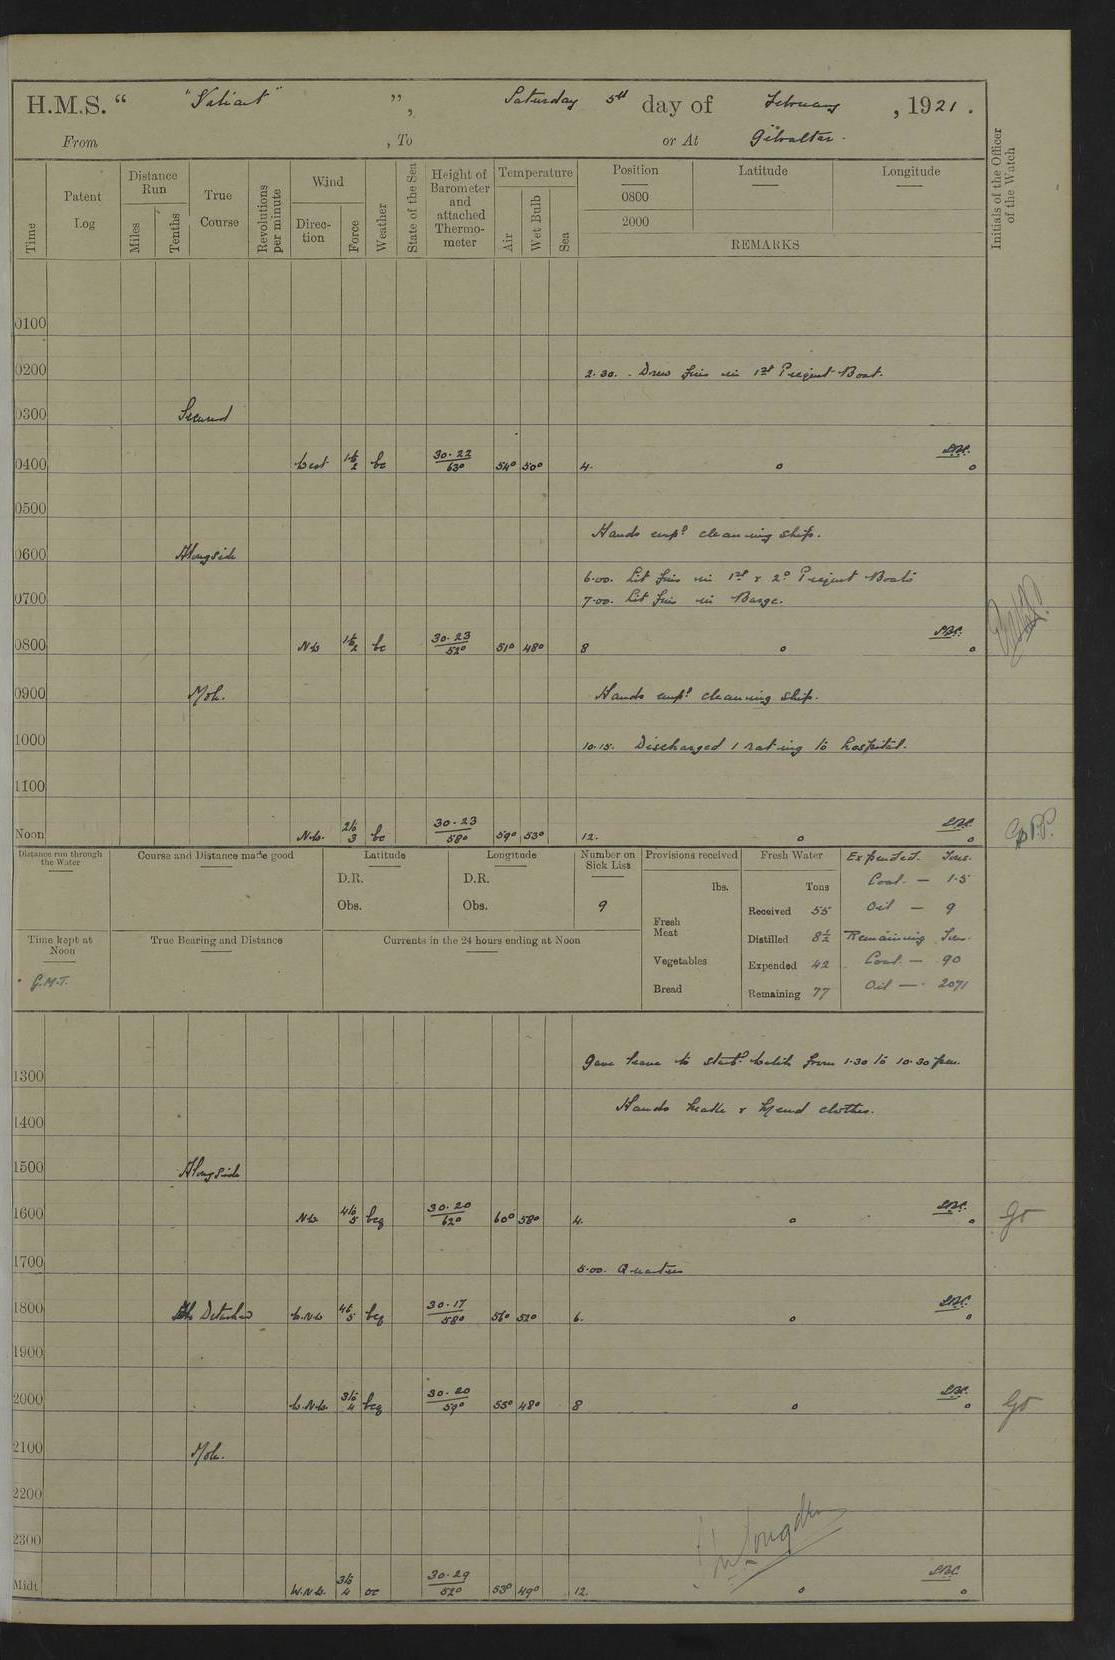 H.M.S. “ "Valiant" ”, Saturday 5th day of February, 1921.
From , To or At Gibraltar.
Time
Patent Log
Distance Run
Miles
Tenths
True Course
Revolutions per minute
Wind
Direction
Force
Weather
State of the Sea
Height of Barometer and attached Thermometer
Temperature
Air
Wet Bulb
Sea
Position Latitude Longitude
0800
2000
REMARKS
Initials of the Officer of the Watch
0100
0200 2.30. Drew fires in 1st Picquet Boat.
0300 Secured
0400 West 1 to 2 bc 30.22 63° 54° 50° 4. o o
0500
Hands empd cleaning ship.
0600 Alongside
6.00. Lit fires in 1st & 2d Picquet Boats
0700 7.00. Lit fires in Barge.
0800 NW 1 to 2 bc 30.23 52° 51° 48° 8 o o
0900 Mole. Hands empd cleaning ship.
1000 10.15. Discharged 1 rating to hospital.
1100
Noon N.W. 2 to 3 bc 30.23 58° 59° 53° 12. o o
Distance run through the Water
Course and Distance made good
Latitude
D.R.
Obs.
Longitude
D.R.
Obs.
Number on Sick List
9
Provisions received
lbs.
Fresh Meat
Vegetables
Bread
Fresh Water
Tons
Received 55
Distilled 8½
Expended 42
Remaining 77
Expended. Tons.
Coal. — 1.5
Oil — 9
Remaining Tons.
Coal. — 90
Oil — 2071
Time kept at Noon
G.M.T.
True Bearing and Distance
Currents in the 24 hours ending at Noon
Gave leave to starbd watch from 1.30 to 10.30 pm.
1300
Hands make & mend clothes.
1400
1500 Alongside
1600 NW 4 to 5 bcq 30.20 62° 60° 58° 4. o o
1700 5.00. Quarters
1800 Detached W.N.W 4 to 5 bcq 30.17 58° 56° 52° 6. o o
1900
2000 W.N.W. 3 to 4 bcq 30.20 59° 55° 48° 8 o o
2100 Mole.
2200
2300
Midt. W.N.W. 3 to 4 oc 30.29 52° 53° 49° 12. o o